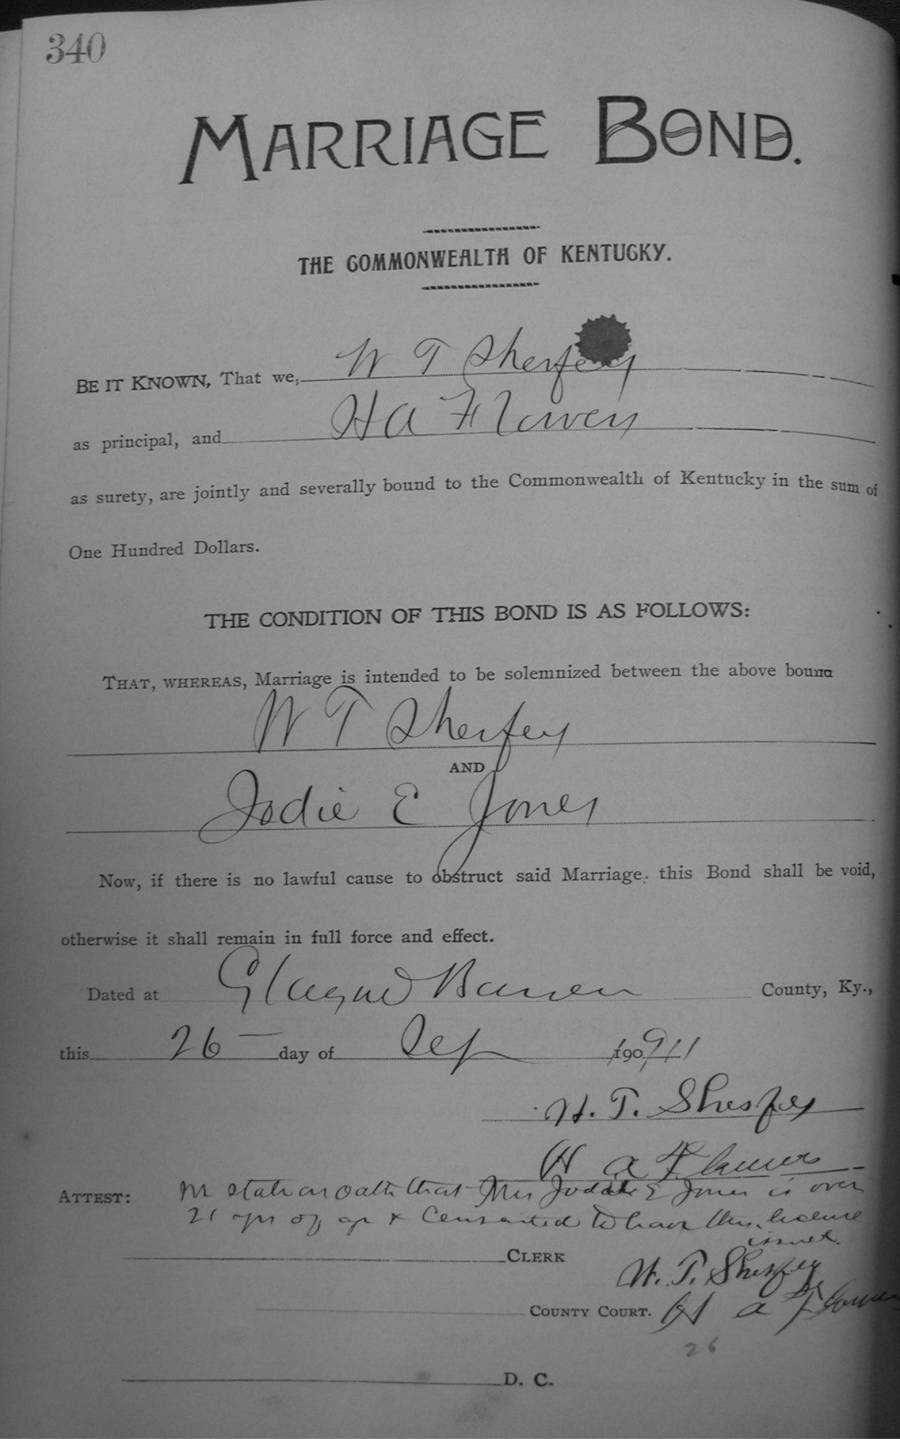 340
MARRIAGE BOND.
THE COMMONWEALTH OF KENTUCKY.
BE IT KNOWN, That we, W T Sherfey
as principal, and H A Flowers
as surety, are jointly and severally bound to the Commonwealth of Kentucky in the sum of
One Hundred Dollars.
THE CONDITION OF THIS BOND IS AS FOLLOWS:
THAT, WHEREAS, Marriage is intended to be solemnized between the above bound
W T Sherfey
AND
Jodie E Jones
Now, if there is no lawful cause to obstruct said Marriage, this Bond shall be void,
otherwise it shall remain in full force and effect.
Dated at Glasgow Barren County, Ky.,
this 26 day of Sep 1911
W. T. Sherfey
H A Flowers
ATTEST: We state on oath that Mrs Jodie E Jones is over
21 yrs of age & Consented to have this license
issued.
CLERK
W. T. Sherfey
COUNTY COURT. H A Flowers
26
D. C.